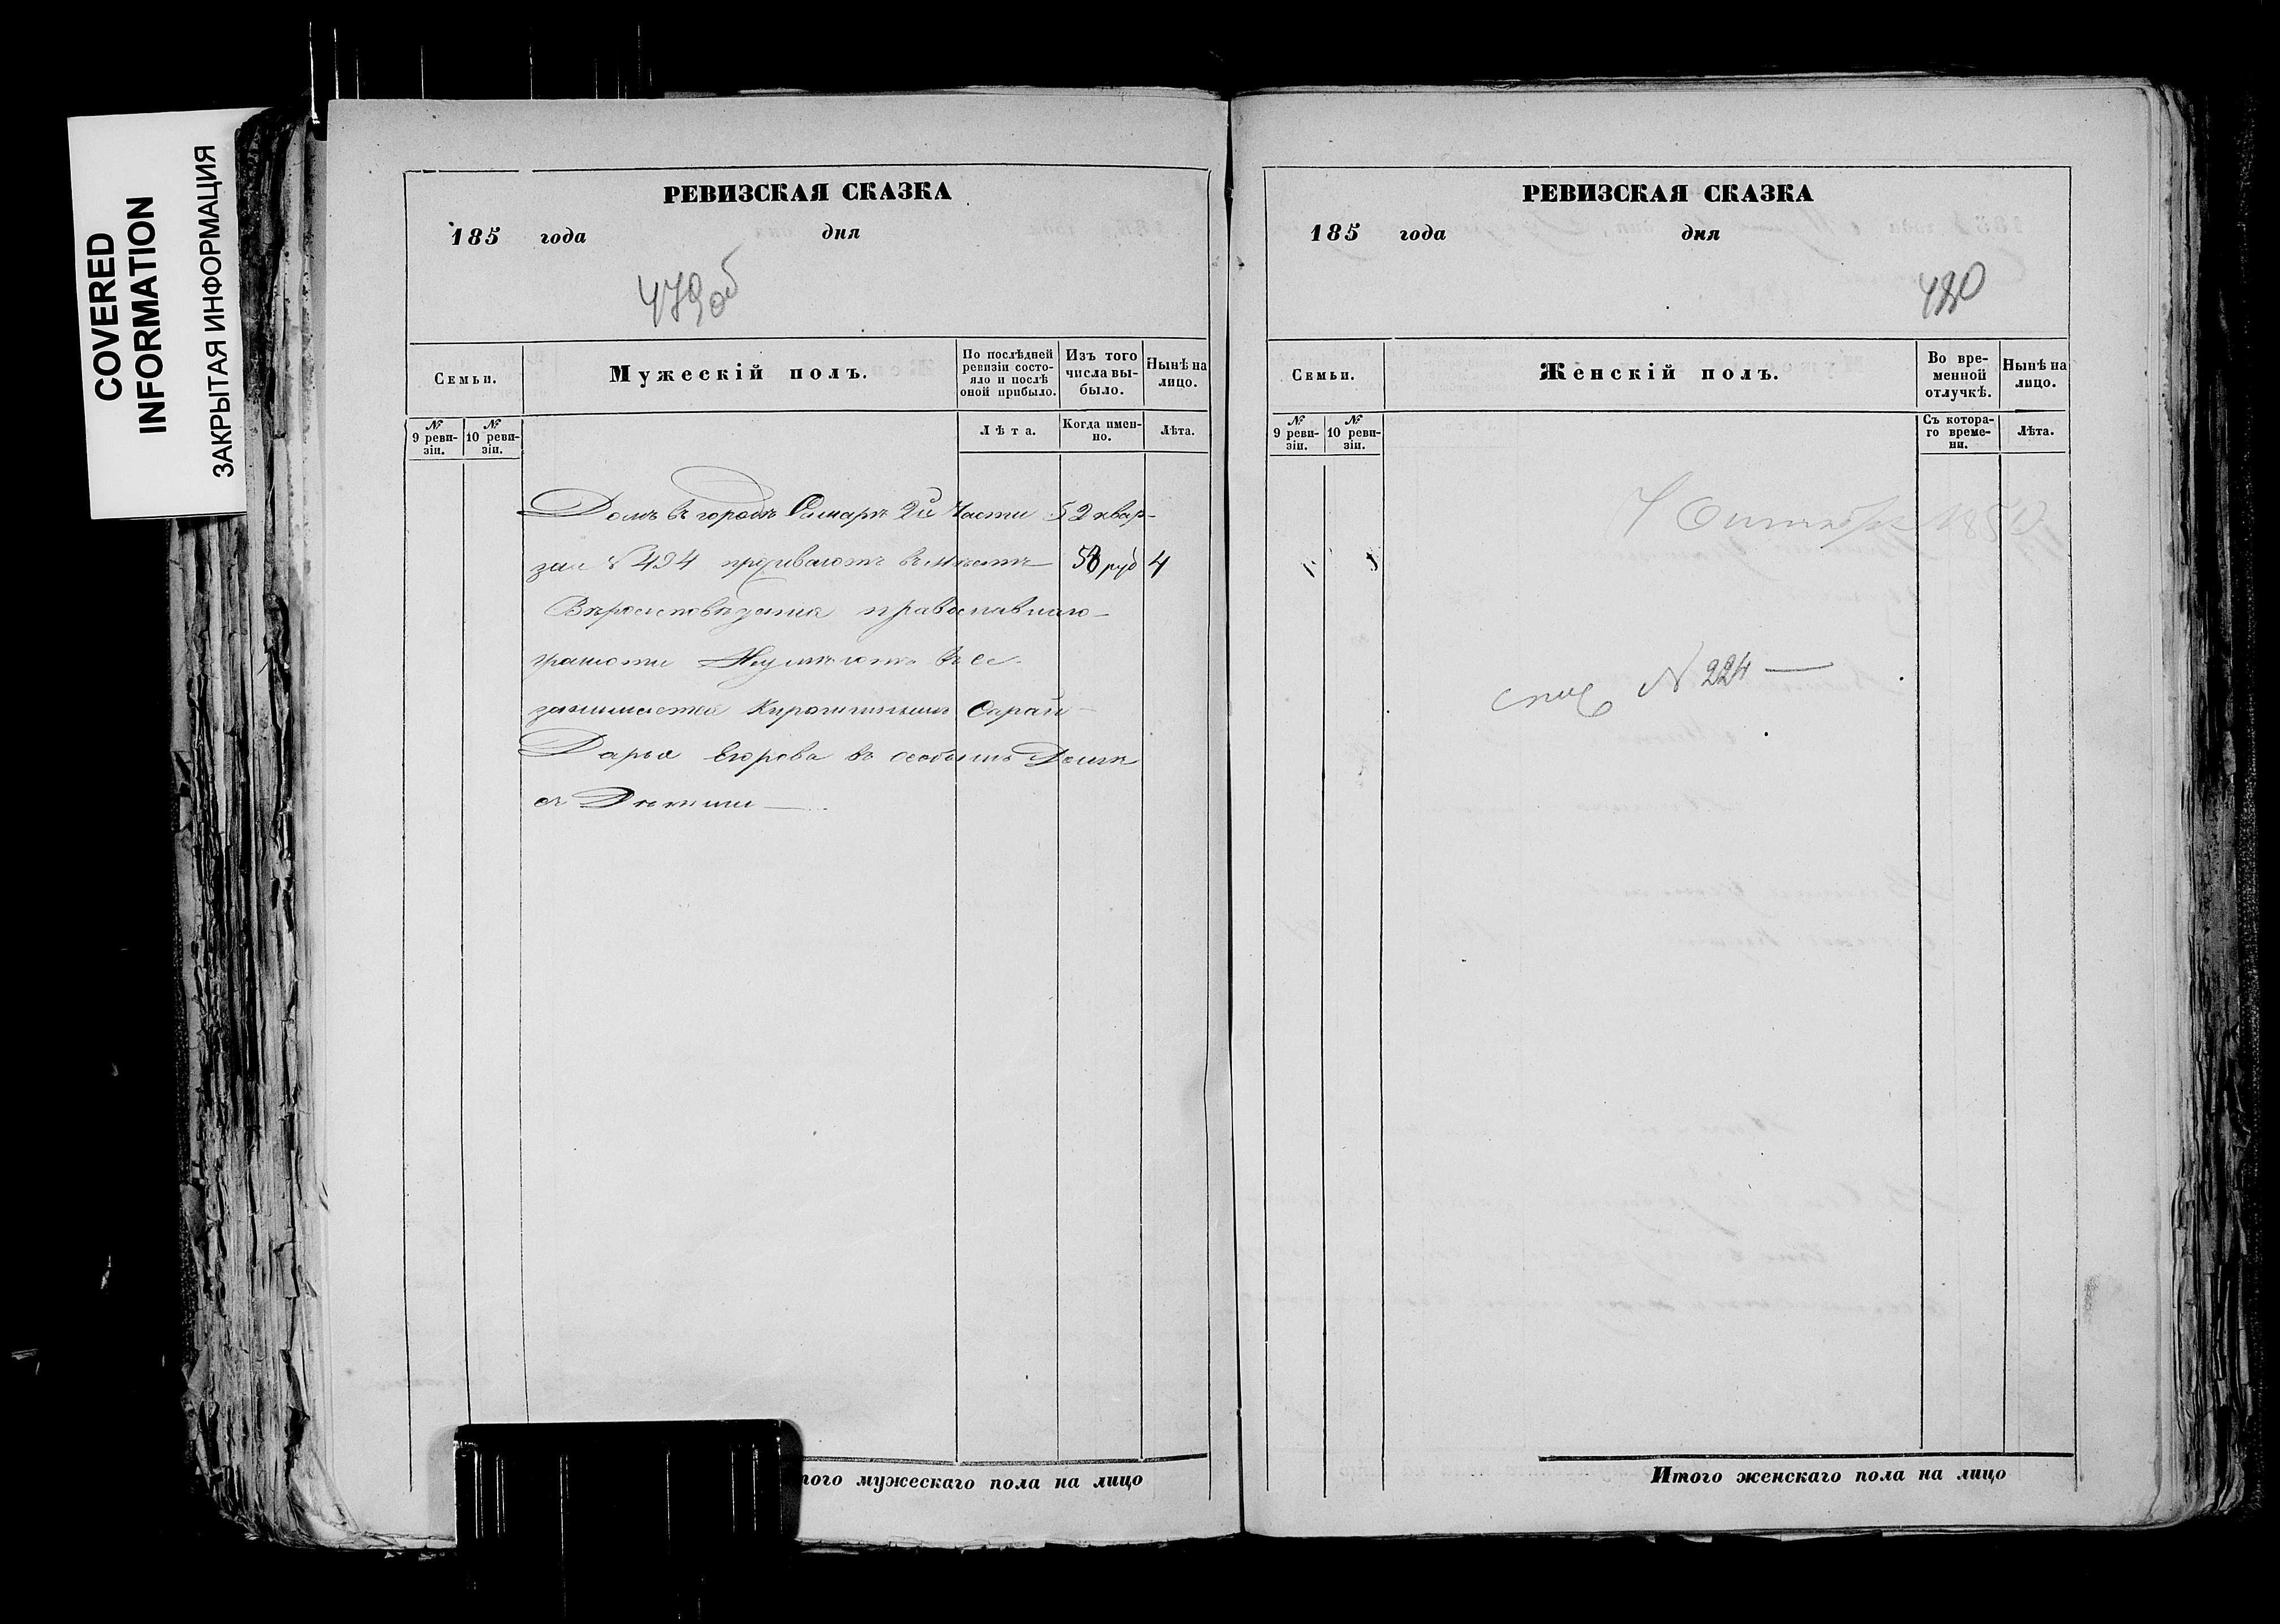 COVERED
INFORMATION
ЗАКРЫТАЯ ИНФОРМАЦИЯ
РЕВИЗСКАЯ СКАЗКА
185 года дня
479об
Семьи.
Мужескій полъ.
По послѣдней ревизіи состояло и послѣ оной прибыло.
Изъ того числа выбыло.
Нынѣ на лицо.
№ 9 ревизіи.
№ 10 ревизіи.
Лѣта.
Когда именно.
Лѣта.
Домъ въ городѣ Самарѣ 2й Части 52 квар-
зал №494 проживаютъ вмѣстѣ 58 руб 4
Вѣроисповѣданія православнаго
грамоти Неумѣютъ все
занимается Кирпичнымъ Сарай
Дарья Егорова въ особымъ Домѣ
съ Дѣтими
того мужескаго пола на лицо
РЕВИЗСКАЯ СКАЗКА
185 года дня
480
Семьи.
Женскій полъ.
Во временной отлучкѣ.
Нынѣ на лицо.
№ 9 ревизіи.
№ 10 ревизіи.
Съ котораго времени.
Лѣта.
N 224
Итого женскаго пола на лицо